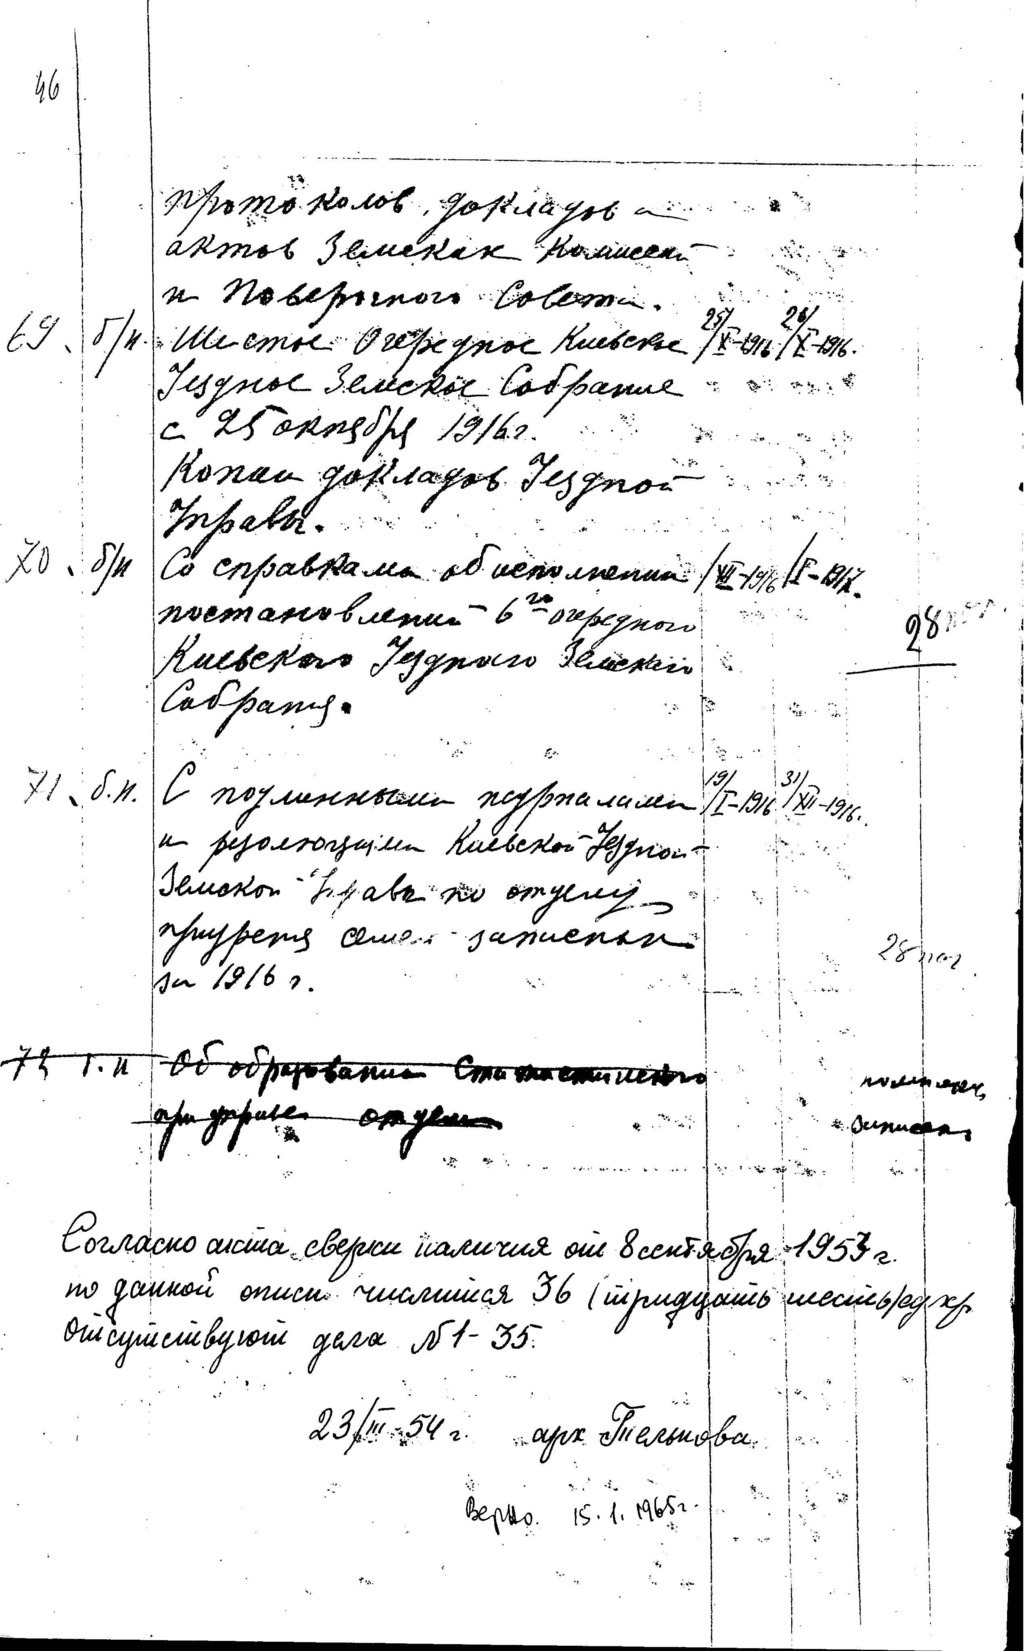 46
протоколов, докладов и
актов Земских Комиссий
и Поверочного Совета.
69. б/н. Шестое Очередное Киевское 25/X-1916 26/X-1916.
Уездное Земское Собрание
с 25 октября 1916 г.
Копии докладов Уездной
Управы.
70. б/н Со справками об исполнении /VII-1916 /I-1917.
постановлений 6го очередного
28
Киевского Уездного Земского
Собрания.
71. б.н. С подлинными журналами 19/I-1916 31/XII-1916.
и резолюциями Киевской Уездной
Земской Управы по отделу
призрения семей запасных
за 1916 г.
28
72 б.н Об образовании Статистического
при управе отдела
записан
Согласно акта сверки наличия от 8 сентября 1953 г.
по данной описи числится 36 (тридцать шесть) ед хр.
Отсутствуют дела № 1-35.
23/III-54 г. арх Телькова
Верно. 15.1.1965г.